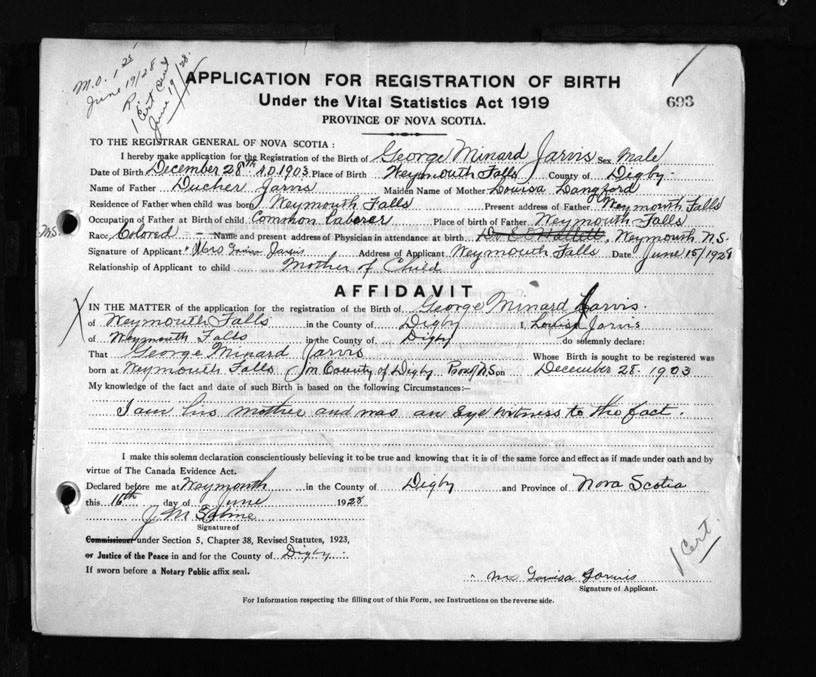 M.O. 1 25
June 19/28
1 Cert
June 19/28
APPLICATION FOR REGISTRATION OF BIRTH
Under the Vital Statistics Act 1919
693
PROVINCE OF NOVA SCOTIA.
TO THE REGISTRAR GENERAL OF NOVA SCOTIA :
I hereby make application for the Registration of the Birth of George Minard Jarvis Sex Male
Date of Birth December 28th A.D. 1903. Place of Birth Weymouth Falls County of Digby
Name of Father Ducher Jarvis Maiden Name of Mother Louisa Langford
Residence of Father when child was born Weymouth Falls Present address of Father Weymouth Falls
Occupation of Father at Birth of child Common Laberer Place of birth of Father Weymouth Falls
Race Colored Name and present address of Physician in attendance at birth Dr E O Hallett, Weymouth N.S.
Signature of Applicant Mrs Jarvis Address of Applicant Weymouth Falls Date June 15/1928
Relationship of Applicant to child Mother of Child
AFFIDAVIT
IN THE MATTER of the application for the registration of the Birth of George Minard Jarvis
of Weymouth Falls in the County of Digby I, Louisa Jarvis
of Weymouth Falls in the County of Digby do solemnly declare:
That George Minard Jarvis Whose Birth is sought to be registered was
born at Weymouth Falls in County of Digby N.S on December 28. 1903
My knowledge of the fact and date of such Birth is based on the following Circumstances:—
I am his mother and was an Eye witness to the fact.
I make this solemn declaration conscientiously believing it to be true and knowing that it is of the same force and effect as if made under oath and by
virtue of The Canada Evidence Act.
Declared before me at Weymouth in the County of Digby and Province of Nova Scotia
this 16th day of June 1928
J M
Signature of
Commissioner under Section 5, Chapter 38, Revised Statutes, 1923,
or Justice of the Peace in and for the County of Digby
If sworn before a Notary Public affix seal.
1 Cert.
Louisa Jarvis
Signature of Applicant.
For Information respecting the filling out of this Form, see Instructions on the reverse side.